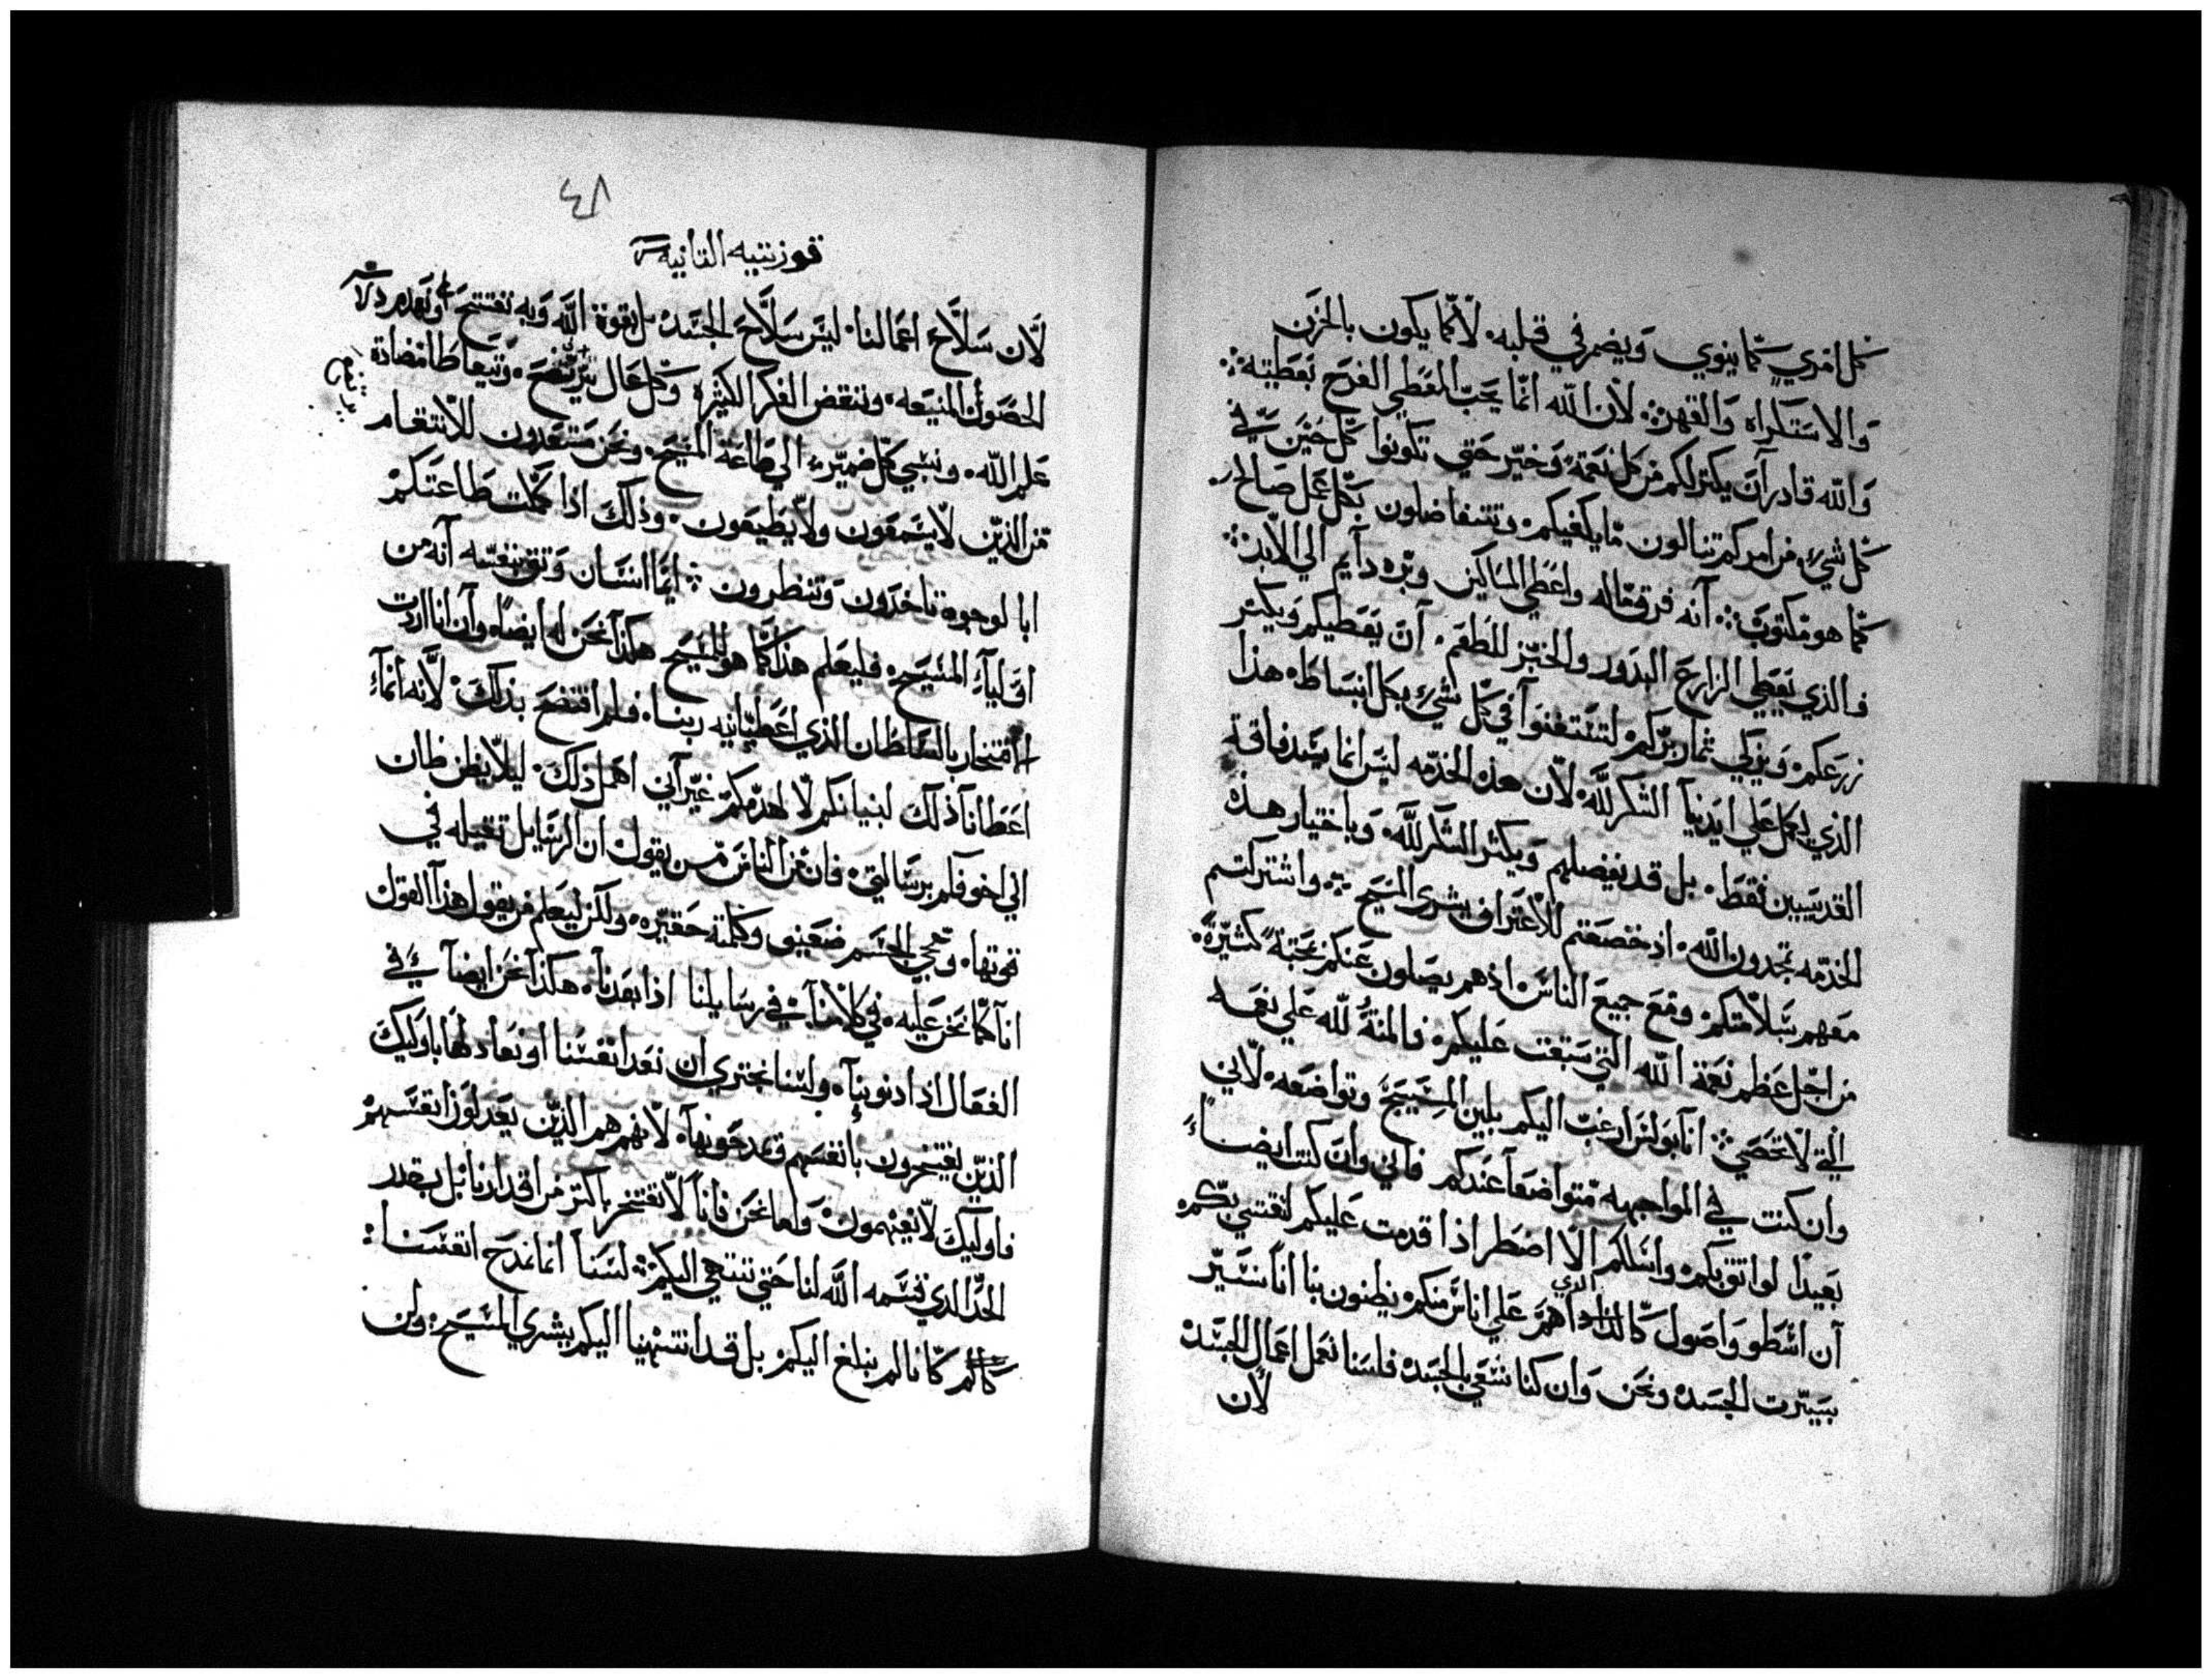 كل امري كما ينوي ويضمر في قلبه لا كما يكون بالحزن
والاستكراه والقهر لان الله انما يحب المعطي الفرح بعطيته
والله قادر ان يكتر لكم من كل نعمة وخير حتي تكونوا كل حين في
كل شي من امركم تنالون ما يكفيكم وتتفاضلون بكل عمل صالح
كما هو مكتوب انه فرق ماله واعطي المساكين وبره دايم الي الابد
فالذي يعطي الزارع البدور والخبز للطعم ان يعطيكم ويكتر
زرعكم ويزكي ثمار بركم لتستغنوا في كل شي بكل انبساط هذا
الذي يكمل علي ايدينا الشكر لله لان هذه الخدمه ليس انما يسد فاقة
القديسين فقط بل قد يفيضلهم ويكتر الشكر لله وباختيار هذه
الخدمه تمجدون الله اذ خضعتم للاعتراف بشري المسيح واشتركتم
معهم بسلامتكم ومع جميع الناس اذ هم يصلون عنكم بمحبة كثيرة
من اجل عظم نعمة الله التي سبقت عليكم فالمنة لله علي نعمه
التي لا تحصي انا بولس ارغب اليكم بلين المسيح وتواضعه لاني
وان كنت في المواجهه متواضعا عندكم فاني وان كنت ايضا
بعيدا لواثق بكم واسلكم الا اضطر اذا قدمت عليكم لثقتي بكم
ان اسطو واصول كالذي اهم علي اناس منكم يظنون بنا انا نسير
بسيرت الجسد ونحن وان كنا نسعي بالجسد فلسنا نعمل اعمال الجسد
لان
٤٨
قورنتيه التانيه
لان سلاح اعمالنا ليس سلاح الجسد بل بقوة الله وبه نفتتح
الحصون المنيعه وننقض الفكر الكثيره وكل عال يتعاطا مضادة
علم الله ونسبي كل ضمير الي طاعة المسيح ونحن مستعدون للانتقام
من الذين لا يسمعون ولا يطيعون وذلك اذا كملت طاعتكم
ابالوجوه تاخدون وتنظرون ايما انسان وتق بنفسه انه من
اوليآ المسيح فليعلم هذا كما هو للمسيح هكذا نحن له ايضا وان انا اردت
الافتخار بالسلطان الذي اعطيانيه ربنا فلم افتضح بذلك لانه انما
اعطانا ذلك لبنيانكم لا لهدمكم غير اني اهمل ذلك ليلا يظن ظان
اني اخوفكم برسالتي فان من الناس من يقول ان الرسايل تقيله في
نوتها ومجي الجسم ضعيف وكلمته حقيره ولكن ليعلم من يقول هذا القول
انا كما نحن عليه في كلامنا في رسايلنا اذا بعدنا هكذا نحن ايضا في
الفعال اذا دنونا ولسنا نجتري ان نعد انفسنا او نعادلها باوليك
الذين يفتخرون بانفسهم ويمدحونها لانهم هم الذين يعدلون انفسهم
فاوليك لا يفهمون واما نحن فانا لا نفتخر باكتر من اقدارنا بل بقدر
الحد الذي قسمه الله لنا حتي ننتهي اليكم لسنا انما نمدح انفسنا
كانا لم نبلغ اليكم بل قد انتهينا اليكم بشري المسيح ولن